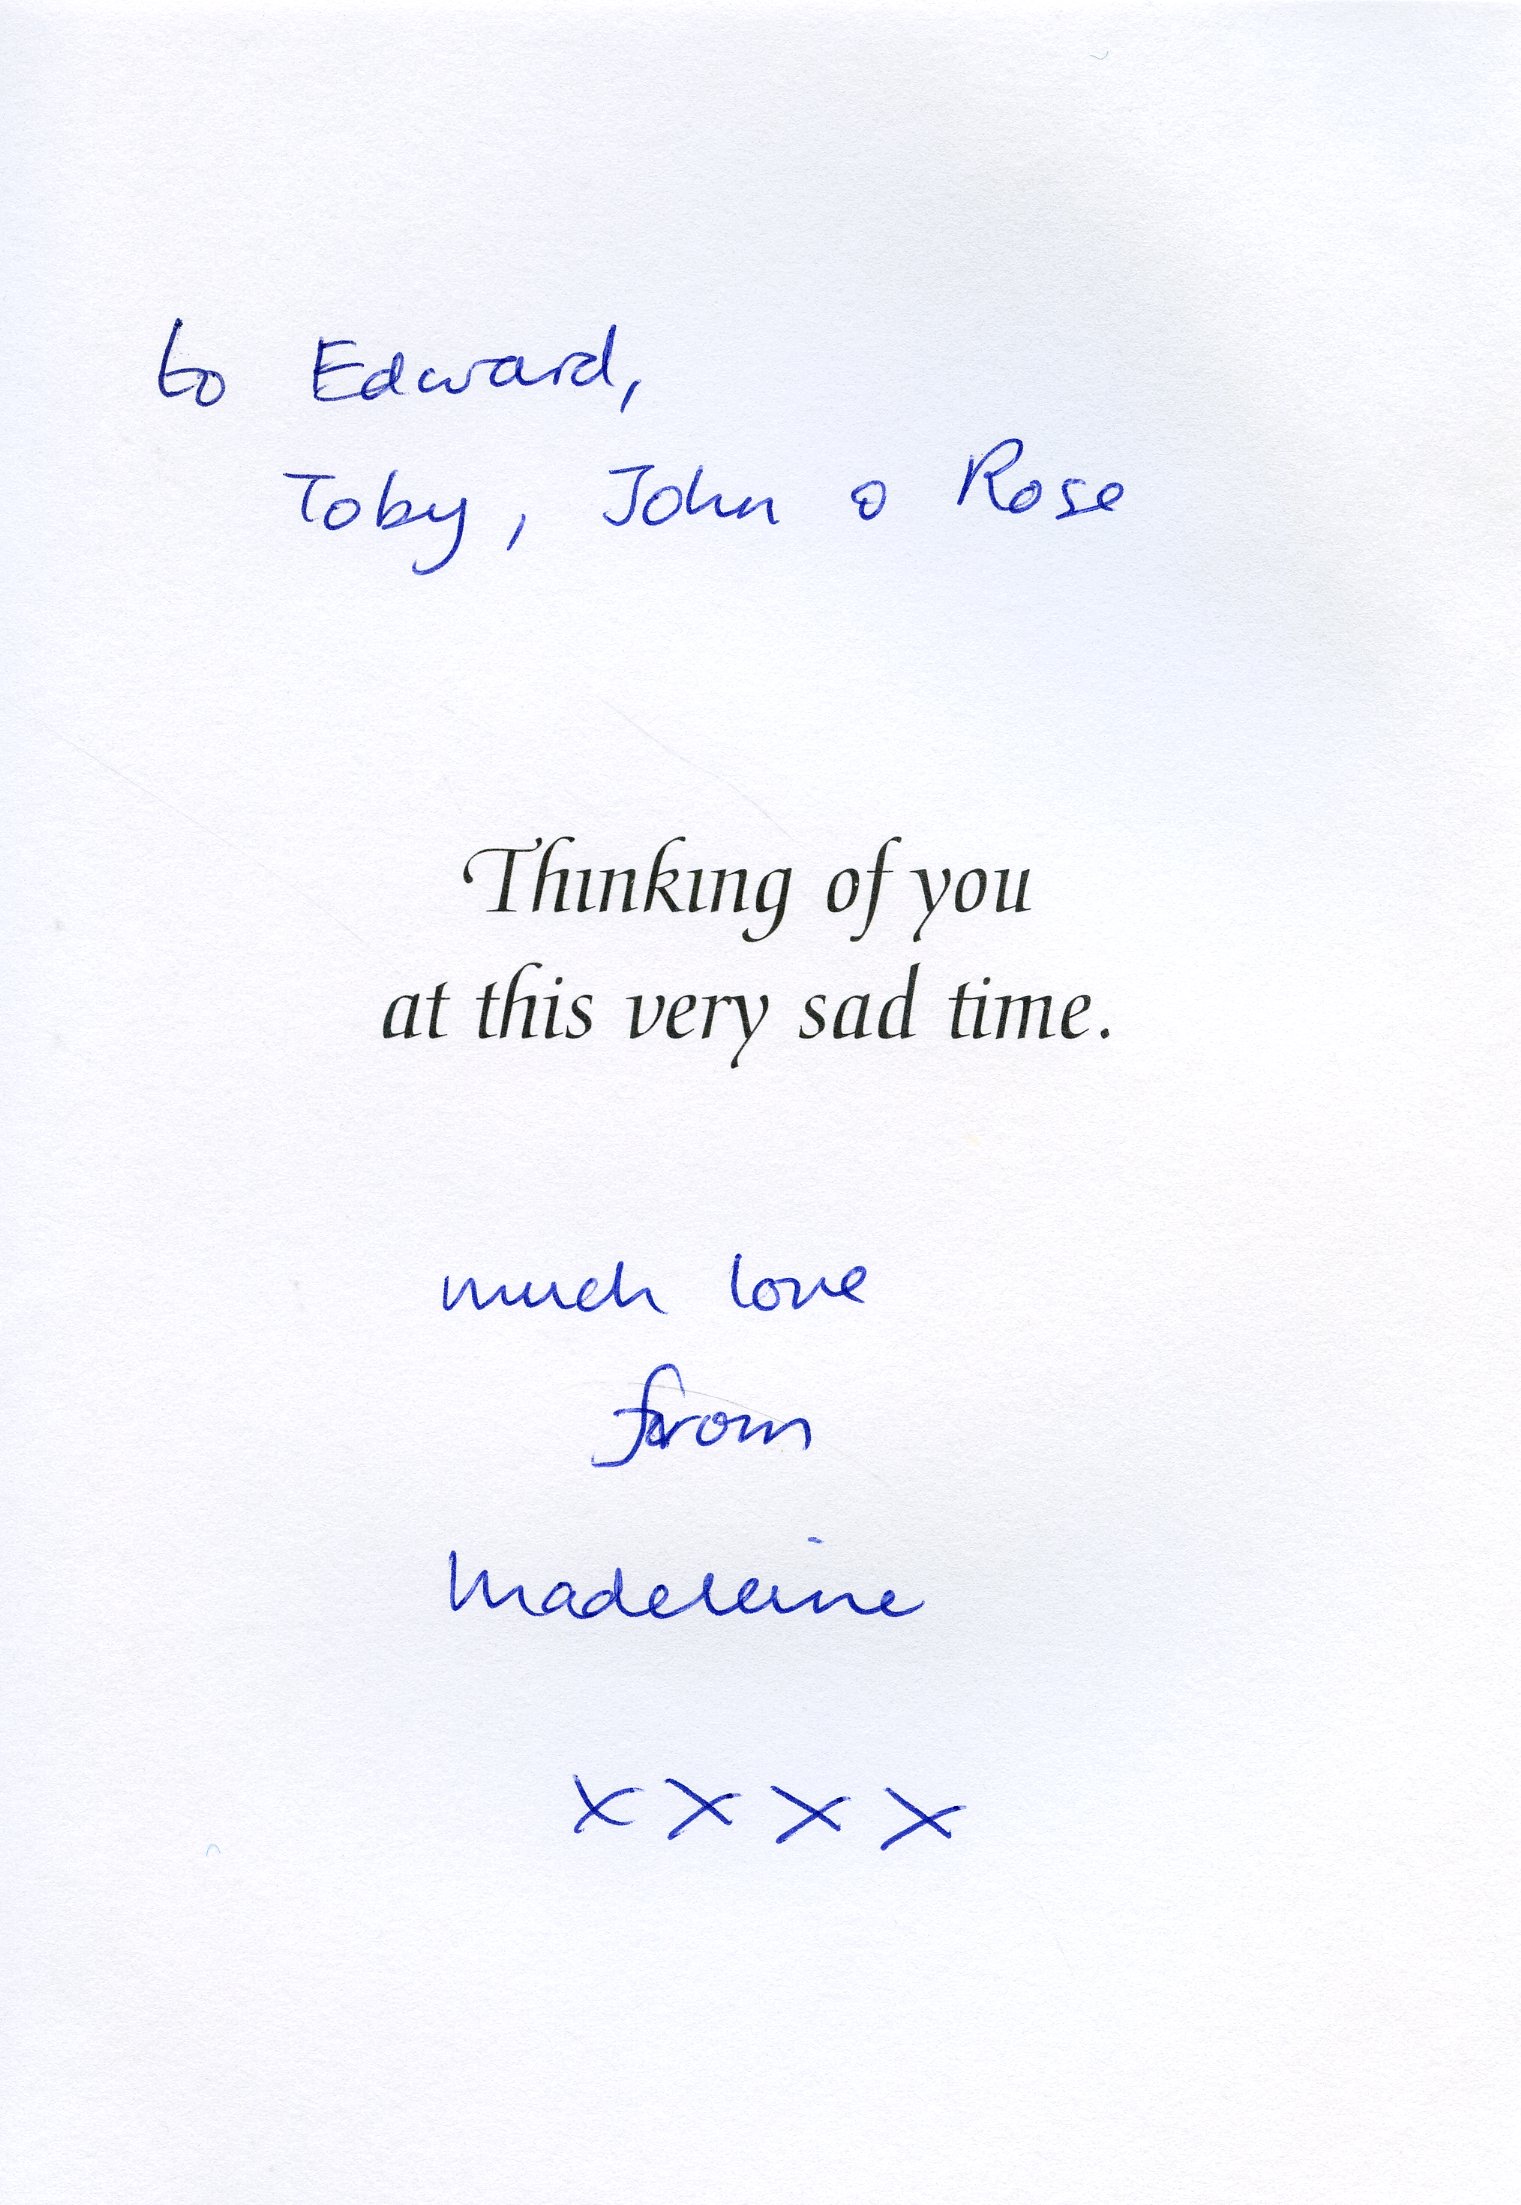 to Edward,
Toby, John o Rose
Thinking of you
at this very sad time.
much love
from
Madeleine
x x x x